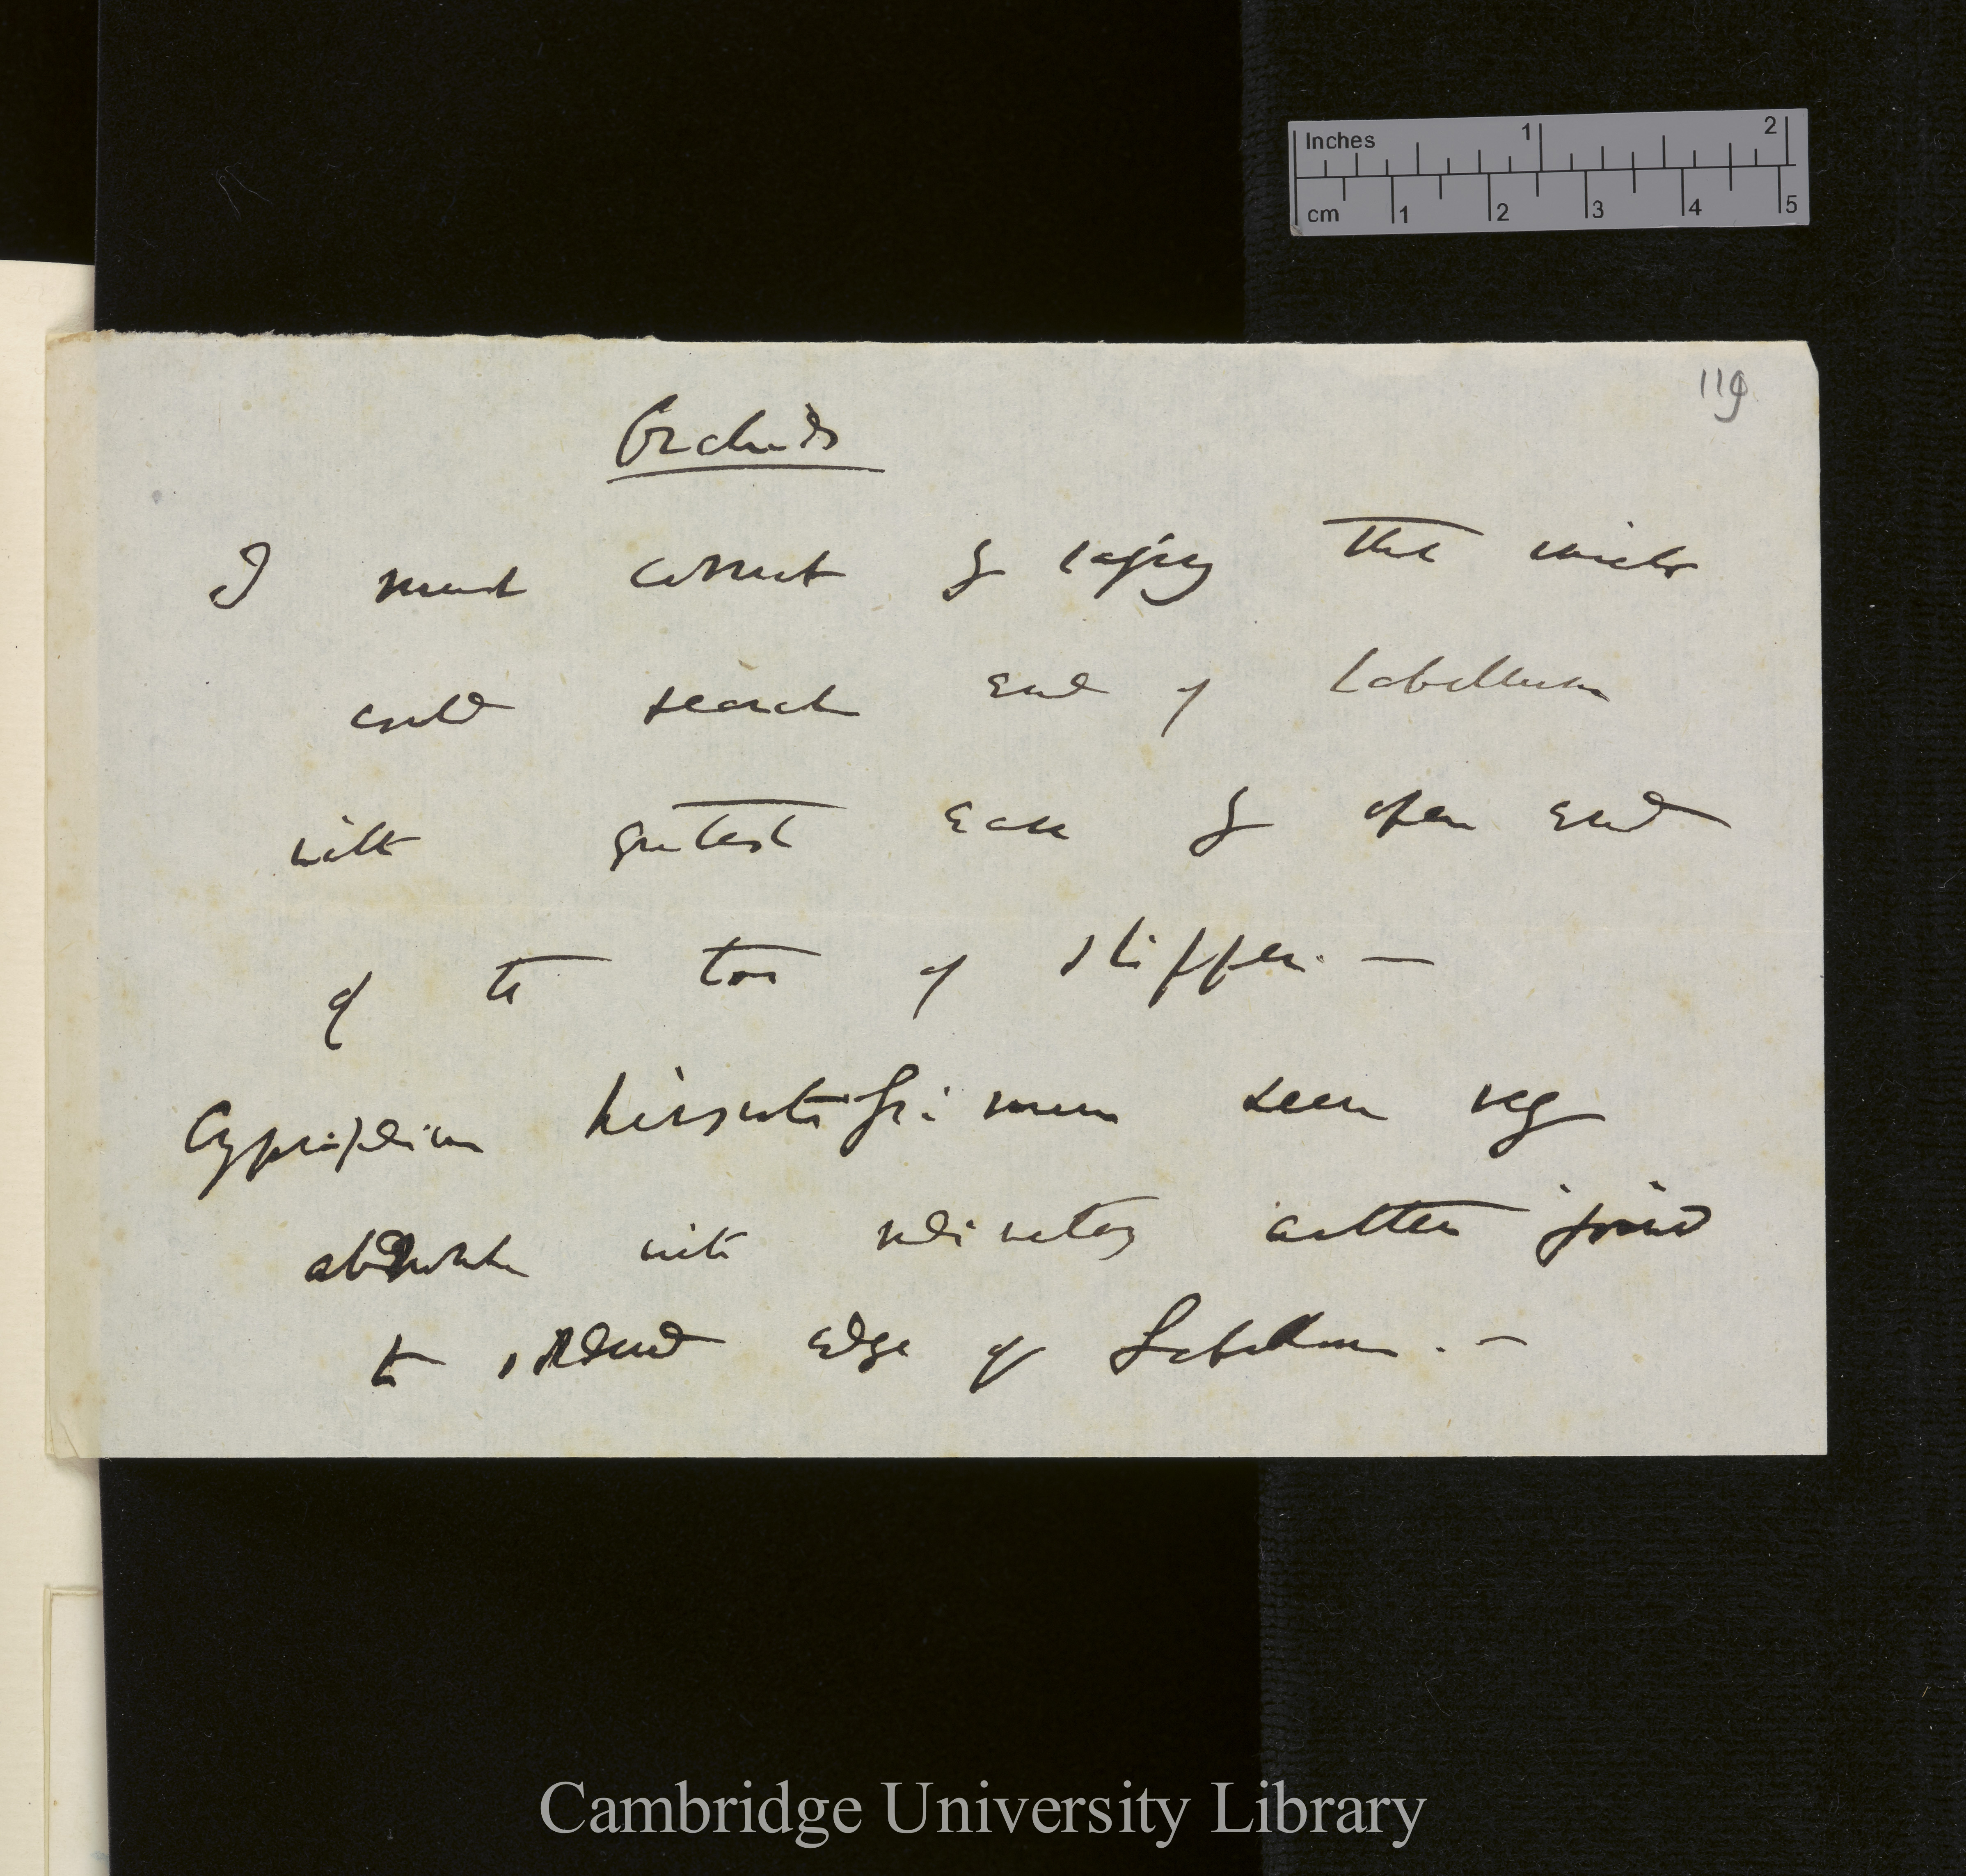 Inches 1 2
cm 1 2 3 4 5
119
Orchids
I must correct by saying that insects
could search end of Labellum
with greatest ease by open end
of the toe of slipper. —
Cypripedium hirsutissimum seen
with rudimentary anther joined
to edge of Labellum. —
Cambridge University Library